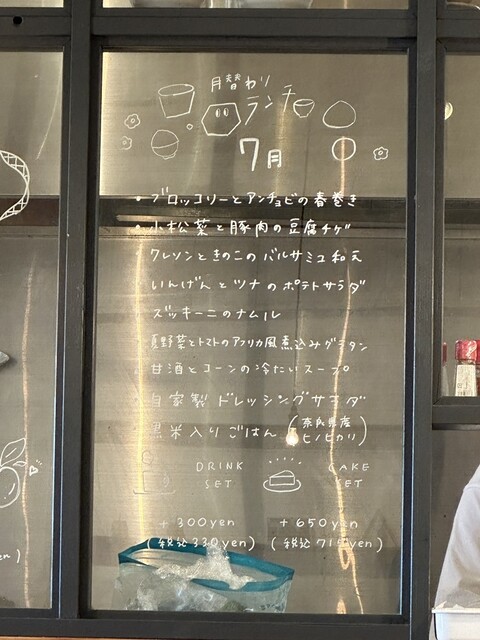 月替わり
ランチ
7月
・ブロッコリーとアンチョビの春巻き
・小松菜と豚肉の豆腐チゲ
・クレソンときのこのバルサミコ和え
・いんげんとツナのポテトサラダ
・ズッキーニのナムル
・夏野菜とトマトのアフリカ風煮込みグラタン
・甘酒とコーンの冷たいスープ
・自家製ドレッシングサラダ
・黒米入りごはん(奈良県産ヒノヒカリ)
DRINK SET
CAKE SET
+300yen
(税込330yen)
+650yen
(税込715yen)